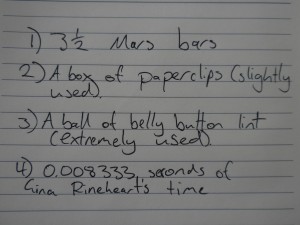 1) 3½ Mars bars
2) A box of paperclips (slightly
used).
3) A ball of belly button lint
(extremely used).
4) 0.008333 seconds of
Gina Rinehart's time